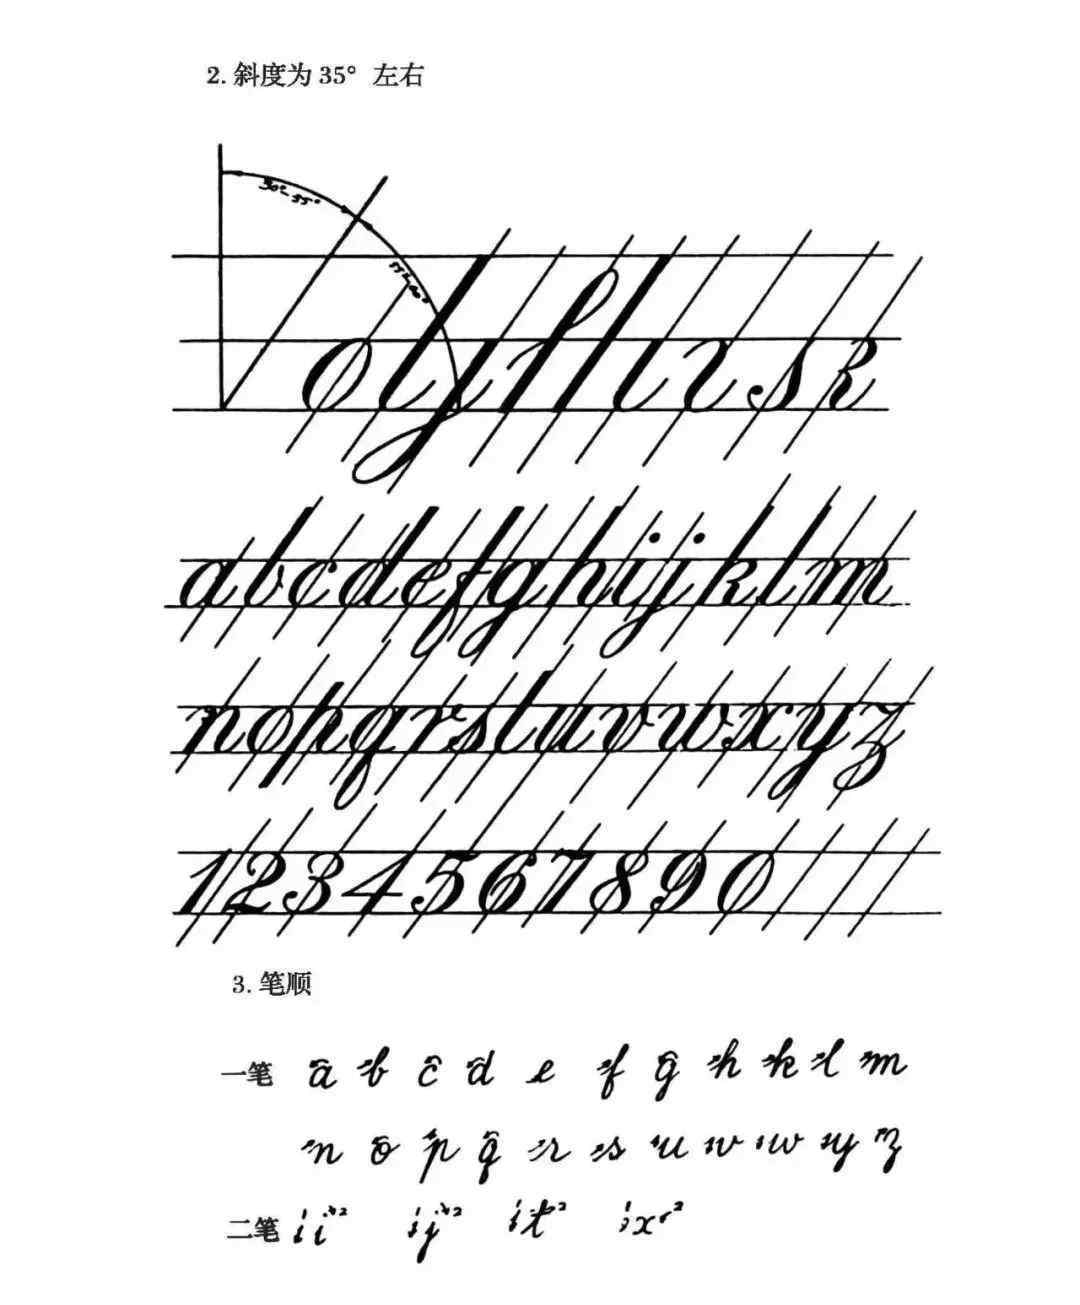 2. 斜度为 35° 左右
30°-35°
a b c d e f g h i j k l m
n o p q r s t u v w x y z
1 2 3 4 5 6 7 8 9 0
3. 笔顺
一笔 a b c d e f g h k l m
n o p q r s u v w y z
二笔 1 i 2 1 j 2 1 t 2 1 x 2